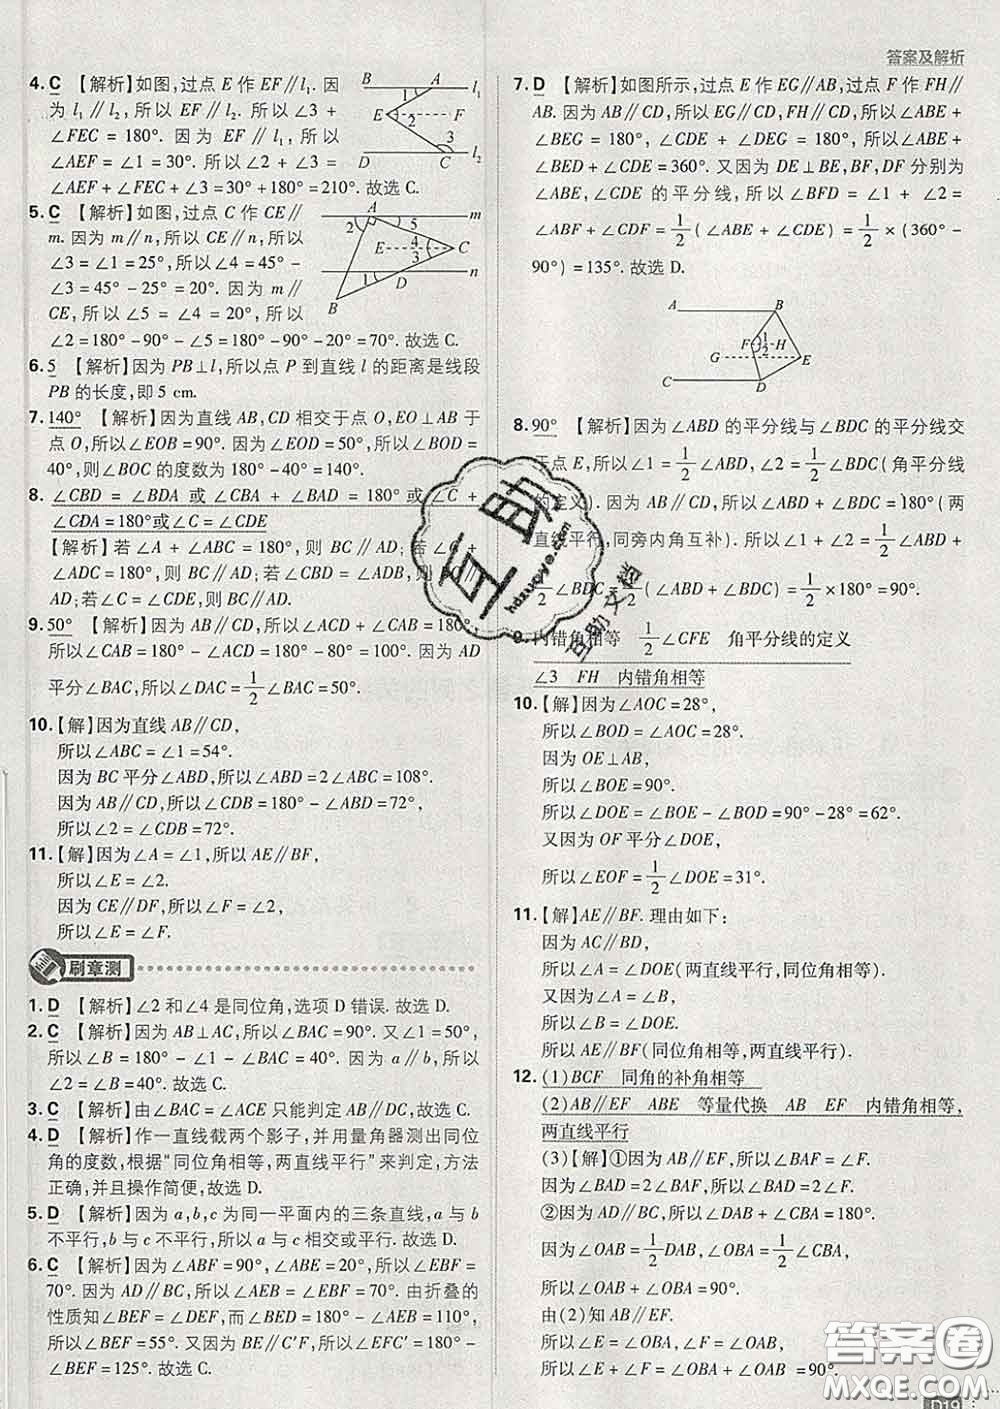 答案及解析
4. C 【解析】如图,过点 E 作 EF∥l₁. 因
为 l₁∥l₂,所以 EF∥l₂. 所以∠3 +
∠FEC = 180°. 因为 EF∥l₁,所以
∠AEF = ∠1 = 30°. 所以∠2 + ∠3 =
∠AEF + ∠FEC + ∠3 = 30° + 180° = 210°. 故选 C.
B A l₁
E 1 2 F
3
D C l₂
5. C 【解析】如图,过点 C 作 CE∥
m. 因为 m∥n,所以 CE∥n,所以
∠3 = ∠1 = 25°,所以∠4 = 45° -
∠3 = 45° - 25° = 20°. 因为 m∥
CE,所以∠5 = ∠4 = 20°,所以
∠2 = 180° - 90° - ∠5 = 180° - 90° - 20° = 70°. 故选 C.
A m
2 5
E 4 C
3
1 D n
B
6. 5 【解析】因为 PB⊥l,所以点 P 到直线 l 的距离是线段
PB 的长度,即 5 cm.
7. 140° 【解析】因为直线 AB,CD 相交于点 O,EO⊥AB 于
点 O,所以∠EOB = 90°. 因为∠EOD = 50°,所以∠BOD =
40°,则∠BOC 的度数为 180° - 40° = 140°.
8. ∠CBD = ∠BDA 或∠CBA + ∠BAD = 180°或∠C +
∠CDA = 180°或∠C = ∠CDE
【解析】若∠A + ∠ABC = 180°,则 BC∥AD;若∠C +
∠ADC = 180°,则 BC∥AD;若∠CBD = ∠ADB,则 BC∥
AD;若∠C = ∠CDE,则 BC∥AD.
9. 50° 【解析】因为 AB∥CD,所以∠ACD + ∠CAB = 180°,
所以∠CAB = 180° - ∠ACD = 180° - 80° = 100°. 因为 AD
平分∠BAC,所以∠DAC = 1/2∠BAC = 50°.
10. 【解】因为直线 AB∥CD,
所以∠ABC = ∠1 = 54°.
因为 BC 平分∠ABD,所以∠ABD = 2∠ABC = 108°.
因为 AB∥CD,所以∠CDB = 180° - ∠ABD = 72°,
所以∠2 = ∠CDB = 72°.
11. 【解】因为∠A = ∠1,所以 AE∥BF,
所以∠E = ∠2.
因为 CE∥DF,所以∠F = ∠2,
所以∠E = ∠F.
刷章测
1. D 【解析】∠2 和∠4 是同位角,选项 D 错误. 故选 D.
2. C 【解析】因为 AB⊥AC,所以∠BAC = 90°. 又∠1 = 50°,
所以∠B = 180° - ∠1 - ∠BAC = 40°. 因为 a∥b,所以
∠2 = ∠B = 40°. 故选 C.
3. C 【解析】由∠BAC = ∠ACE 只能判定 AB∥DC,故选 C.
4. D 【解析】作一直线截两个影子,并用量角器测出同位
角的度数,根据“同位角相等,两直线平行”来判定,方法
正确,并且操作简便,故选 D.
5. D 【解析】因为 a,b,c 为同一平面内的三条直线,a 与 b
不平行,b 与 c 不平行,所以 a 与 c 相交或平行. 故选 D.
6. C 【解析】因为∠ABF = 90°,∠ABE = 20°,所以∠EBF =
70°. 因为 AD∥BC,所以∠AEB = ∠EBF = 70°. 由折叠的
性质知∠BEF = ∠DEF,而∠BED = 180° - ∠AEB = 110°,
所以∠BEF = 55°. 又因为 BE∥C′F,所以∠EFC′ = 180° -
∠BEF = 125°. 故选 C.
7. D 【解析】如图所示,过点 E 作 EG∥AB,过点 F 作 FH∥
AB. 因为 AB∥CD,所以 EG∥CD,FH∥CD,所以∠ABE +
∠BEG = 180°,∠CDE + ∠DEG = 180°,所以∠ABE +
∠BED + ∠CDE = 360°. 又因为 DE⊥BE,BF,DF 分别为
∠ABE,∠CDE 的平分线,所以∠BFD = ∠1 + ∠2 =
∠ABF + ∠CDF = 1/2(∠ABE + ∠CDE) = 1/2 × (360° -
90°) = 135°. 故选 D.
A B
F 1 2 H
G E
C D
8. 90° 【解析】因为∠ABD 的平分线与∠BDC 的平分线交
于点 E,所以∠1 = 1/2∠ABD,∠2 = 1/2∠BDC(角平分线
的定义). 因为 AB∥CD,所以∠ABD + ∠BDC = 180°(两
直线平行,同旁内角互补). 所以∠1 + ∠2 = 1/2∠ABD +
1/2∠BDC = 1/2(∠ABD + ∠BDC) = 1/2 × 180° = 90°.
9. 内错角相等 1/2∠CFE 角平分线的定义
∠3 FH 内错角相等
10. 【解】因为∠AOC = 28°,
所以∠BOD = ∠AOC = 28°.
因为 OE⊥AB,
所以∠BOE = 90°.
所以∠DOE = ∠BOE - ∠BOD = 90° - 28° = 62°.
又因为 OF 平分∠DOE,
所以∠EOF = 1/2∠DOE = 31°.
11. 【解】AE∥BF. 理由如下:
因为 AC∥BD,
所以∠A = ∠DOE(两直线平行,同位角相等).
又因为∠A = ∠B,
所以∠B = ∠DOE.
所以 AE∥BF(同位角相等,两直线平行).
12. (1)BCF 同角的补角相等
(2)AB∥EF ABE 等量代换 AB EF 内错角相等,
两直线平行
(3)【解】①因为 AB∥EF,所以∠BAF = ∠F.
因为∠BAD = 2∠BAF,所以∠BAD = 2∠F.
②因为 AD∥BC,所以∠DAB + ∠CBA = 180°.
因为∠OAB = 1/2DAB,∠OBA = 1/2∠CBA,
所以∠OAB + ∠OBA = 90°.
由(2)知 AB∥EF.
所以∠E = ∠OBA,∠F = ∠OAB,
所以∠E + ∠F = ∠OBA + ∠OAB = 90°.
互助
hdzuoye.com
互助文档
答案圈
MXQE.COM
D19